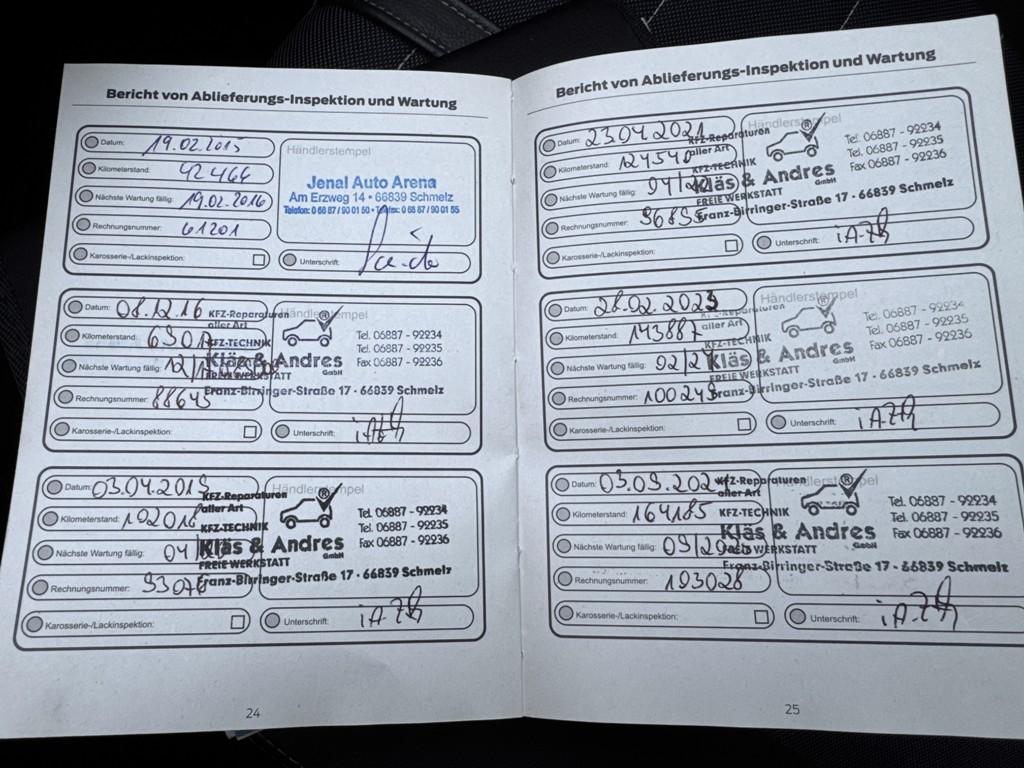 Bericht von Ablieferungs-Inspektion und Wartung
Datum: 19.02.2015
Kilometerstand: 42466
Nächste Wartung fällig: 19.02.2016
Rechnungsnummer: 61201
Karosserie-/Lackinspektion:
Händlerstempel
Jenal Auto Arena
Am Erzweg 14 • 66839 Schmelz
Telefon: 0 68 87 / 90 01 50 • Telefax: 0 68 87 / 90 01 55
Unterschrift:
Datum: 08.12.16
Kilometerstand:
Nächste Wartung fällig: 12/
Rechnungsnummer: 88645
Karosserie-/Lackinspektion:
Händlerstempel
KFZ-Reparaturen
aller Art
KFZ-TECHNIK
Kläs & Andres
GmbH
FREIE WERKSTATT
Franz-Birringer-Straße 17 · 66839 Schmelz
Tel. 06887 - 92234
Tel. 06887 - 92235
Fax 06887 - 92236
Unterschrift:
Datum: 03.04.2019
Kilometerstand: 102016
Nächste Wartung fällig: 04/
Rechnungsnummer: 93076
Karosserie-/Lackinspektion:
Händlerstempel
KFZ-Reparaturen
aller Art
KFZ-TECHNIK
Kläs & Andres
GmbH
FREIE WERKSTATT
Franz-Birringer-Straße 17 · 66839 Schmelz
Tel. 06887 - 92234
Tel. 06887 - 92235
Fax 06887 - 92236
Unterschrift:
24
Bericht von Ablieferungs-Inspektion und Wartung
Datum: 23.04.2021
Kilometerstand: 124540
Nächste Wartung fällig: 04/
Rechnungsnummer:
Karosserie-/Lackinspektion:
Händlerstempel
KFZ-Reparaturen
aller Art
KFZ-TECHNIK
Kläs & Andres
GmbH
FREIE WERKSTATT
Franz-Birringer-Straße 17 · 66839 Schmelz
Tel. 06887 - 92234
Tel. 06887 - 92235
Fax 06887 - 92236
Unterschrift:
Datum: 28.02.2023
Kilometerstand: 143887
Nächste Wartung fällig: 02/2
Rechnungsnummer: 100249
Karosserie-/Lackinspektion:
Händlerstempel
KFZ-Reparaturen
aller Art
KFZ-TECHNIK
Kläs & Andres
GmbH
FREIE WERKSTATT
Franz-Birringer-Straße 17 · 66839 Schmelz
Tel. 06887 - 92234
Tel. 06887 - 92235
Fax 06887 - 92236
Unterschrift:
Datum: 03.09.202
Kilometerstand: 164185
Nächste Wartung fällig: 09/20
Rechnungsnummer: 103026
Karosserie-/Lackinspektion:
Händlerstempel
KFZ-Reparaturen
aller Art
KFZ-TECHNIK
Kläs & Andres
GmbH
FREIE WERKSTATT
Franz-Birringer-Straße 17 · 66839 Schmelz
Tel. 06887 - 92234
Tel. 06887 - 92235
Fax 06887 - 92236
Unterschrift:
25